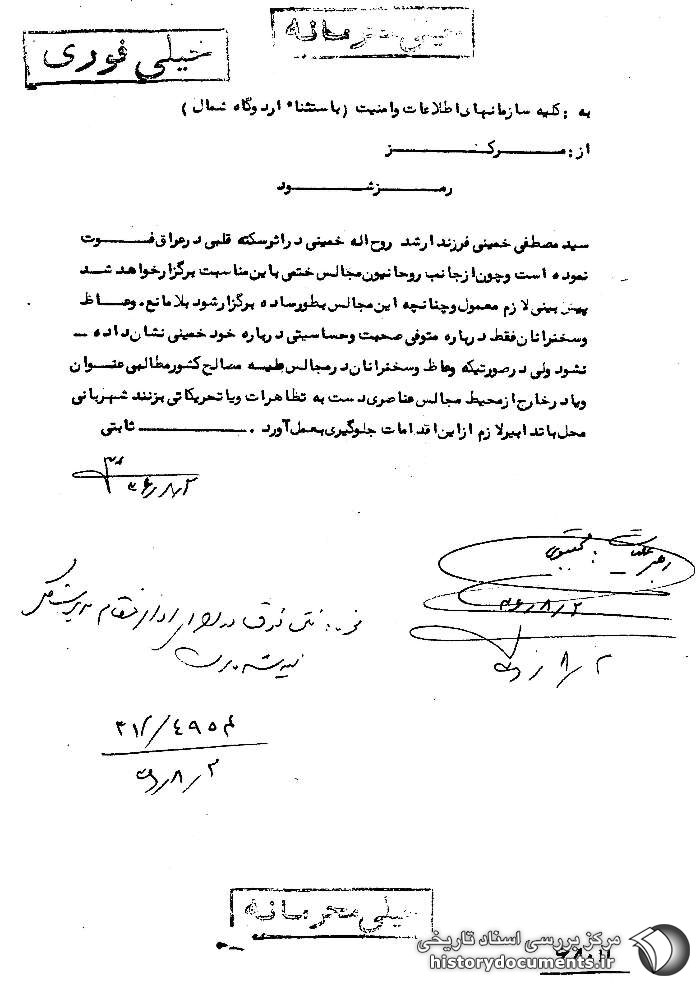 خیلی محرمانه
خیلی فوری
به : کلیه سازمانهای اطلاعات وامنیت ( باستثناء اردوگاه شمال )
از : مـــرکـــز
رمـــزشـــود
سید مصطفی خمینی فرزند ارشد روح اله خمینی در اثرسکته قلبی درعراق فـــوت
نموده است وچون از جانب روحانیون مجالس ختمی باین مناسبت برگزارخواهد شـد
پیش بینی لازم معمول وچنانچه این مجالس بطورساده برگزارشود بلامانع . وعـاظ
وسخنرانان فقط درباره متوفی صحبت وحساسیتی درباره خود خمینی نشان داده ـ
نشود ولی درصورتیکه وعاظ وسخنرانان درمجالس علیه مصالح کشورمطالبی عنـوان
ویا درخارج ازمحیط مجالس عناصری دست به تظاهرات ویا تحریکاتی بزنند شهربانی
محل باتدابیرلازم ازاین اقدامات جلوگیری بعمل آورد . ـــــ ثابتی
۳۶/۸/۲
۳۶/۸/۲
۳۶/۸/۲
۳۱۲/۴۹۵۴
۳۶/۸/۲
خیلی محرمانه
مرکز بررسی اسناد تاریخی
historydocuments.ir